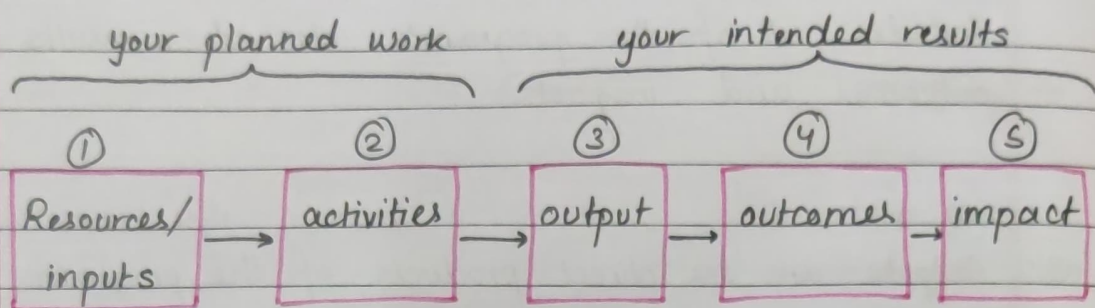 your planned work your intended results
① ② ③ ④ ⑤
Resources/ activities output outcomes impact
inputs